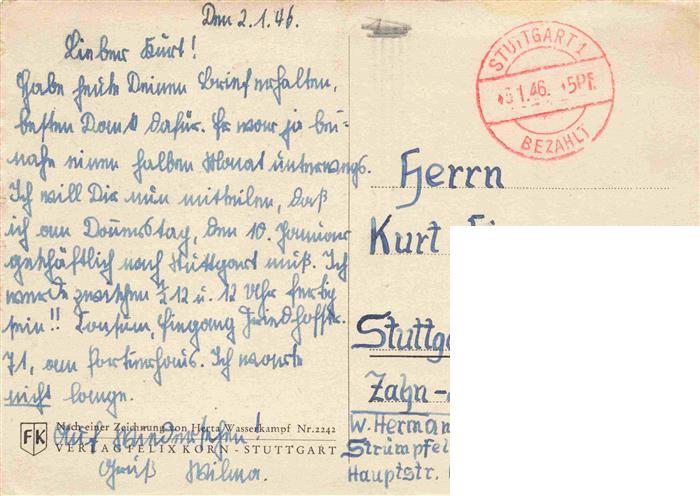 Den 2.1.46.
Lieber Kurt!
Habe heute Deinen Brief erhalten,
besten Dank dafür. Er war ja bei-
nahe einen halben Monat unterwegs.
Ich will Dir nun mitteilen, daß
ich am Donnerstag, den 10. Januar
geschäftlich nach Stuttgart muß. Ich
werde zwischen ½12 u. 12 Uhr fertig
sein!! Konsum, Eingang Friedhofstr.
71, am Portierhaus. Ich warte
nicht lange.
Auf Wiedersehen!
Gruß Wilma.
Nach einer Zeichnung von Herta Wasserkampf Nr. 2242
FK VERLAG FELIX KORN - STUTTGART
STUTTGART 1
1.46. 5Pf.
BEZAHLT
Herrn
Kurt
Stuttg
Zahn-
W. Herman
Strümpfel
Hauptstr.